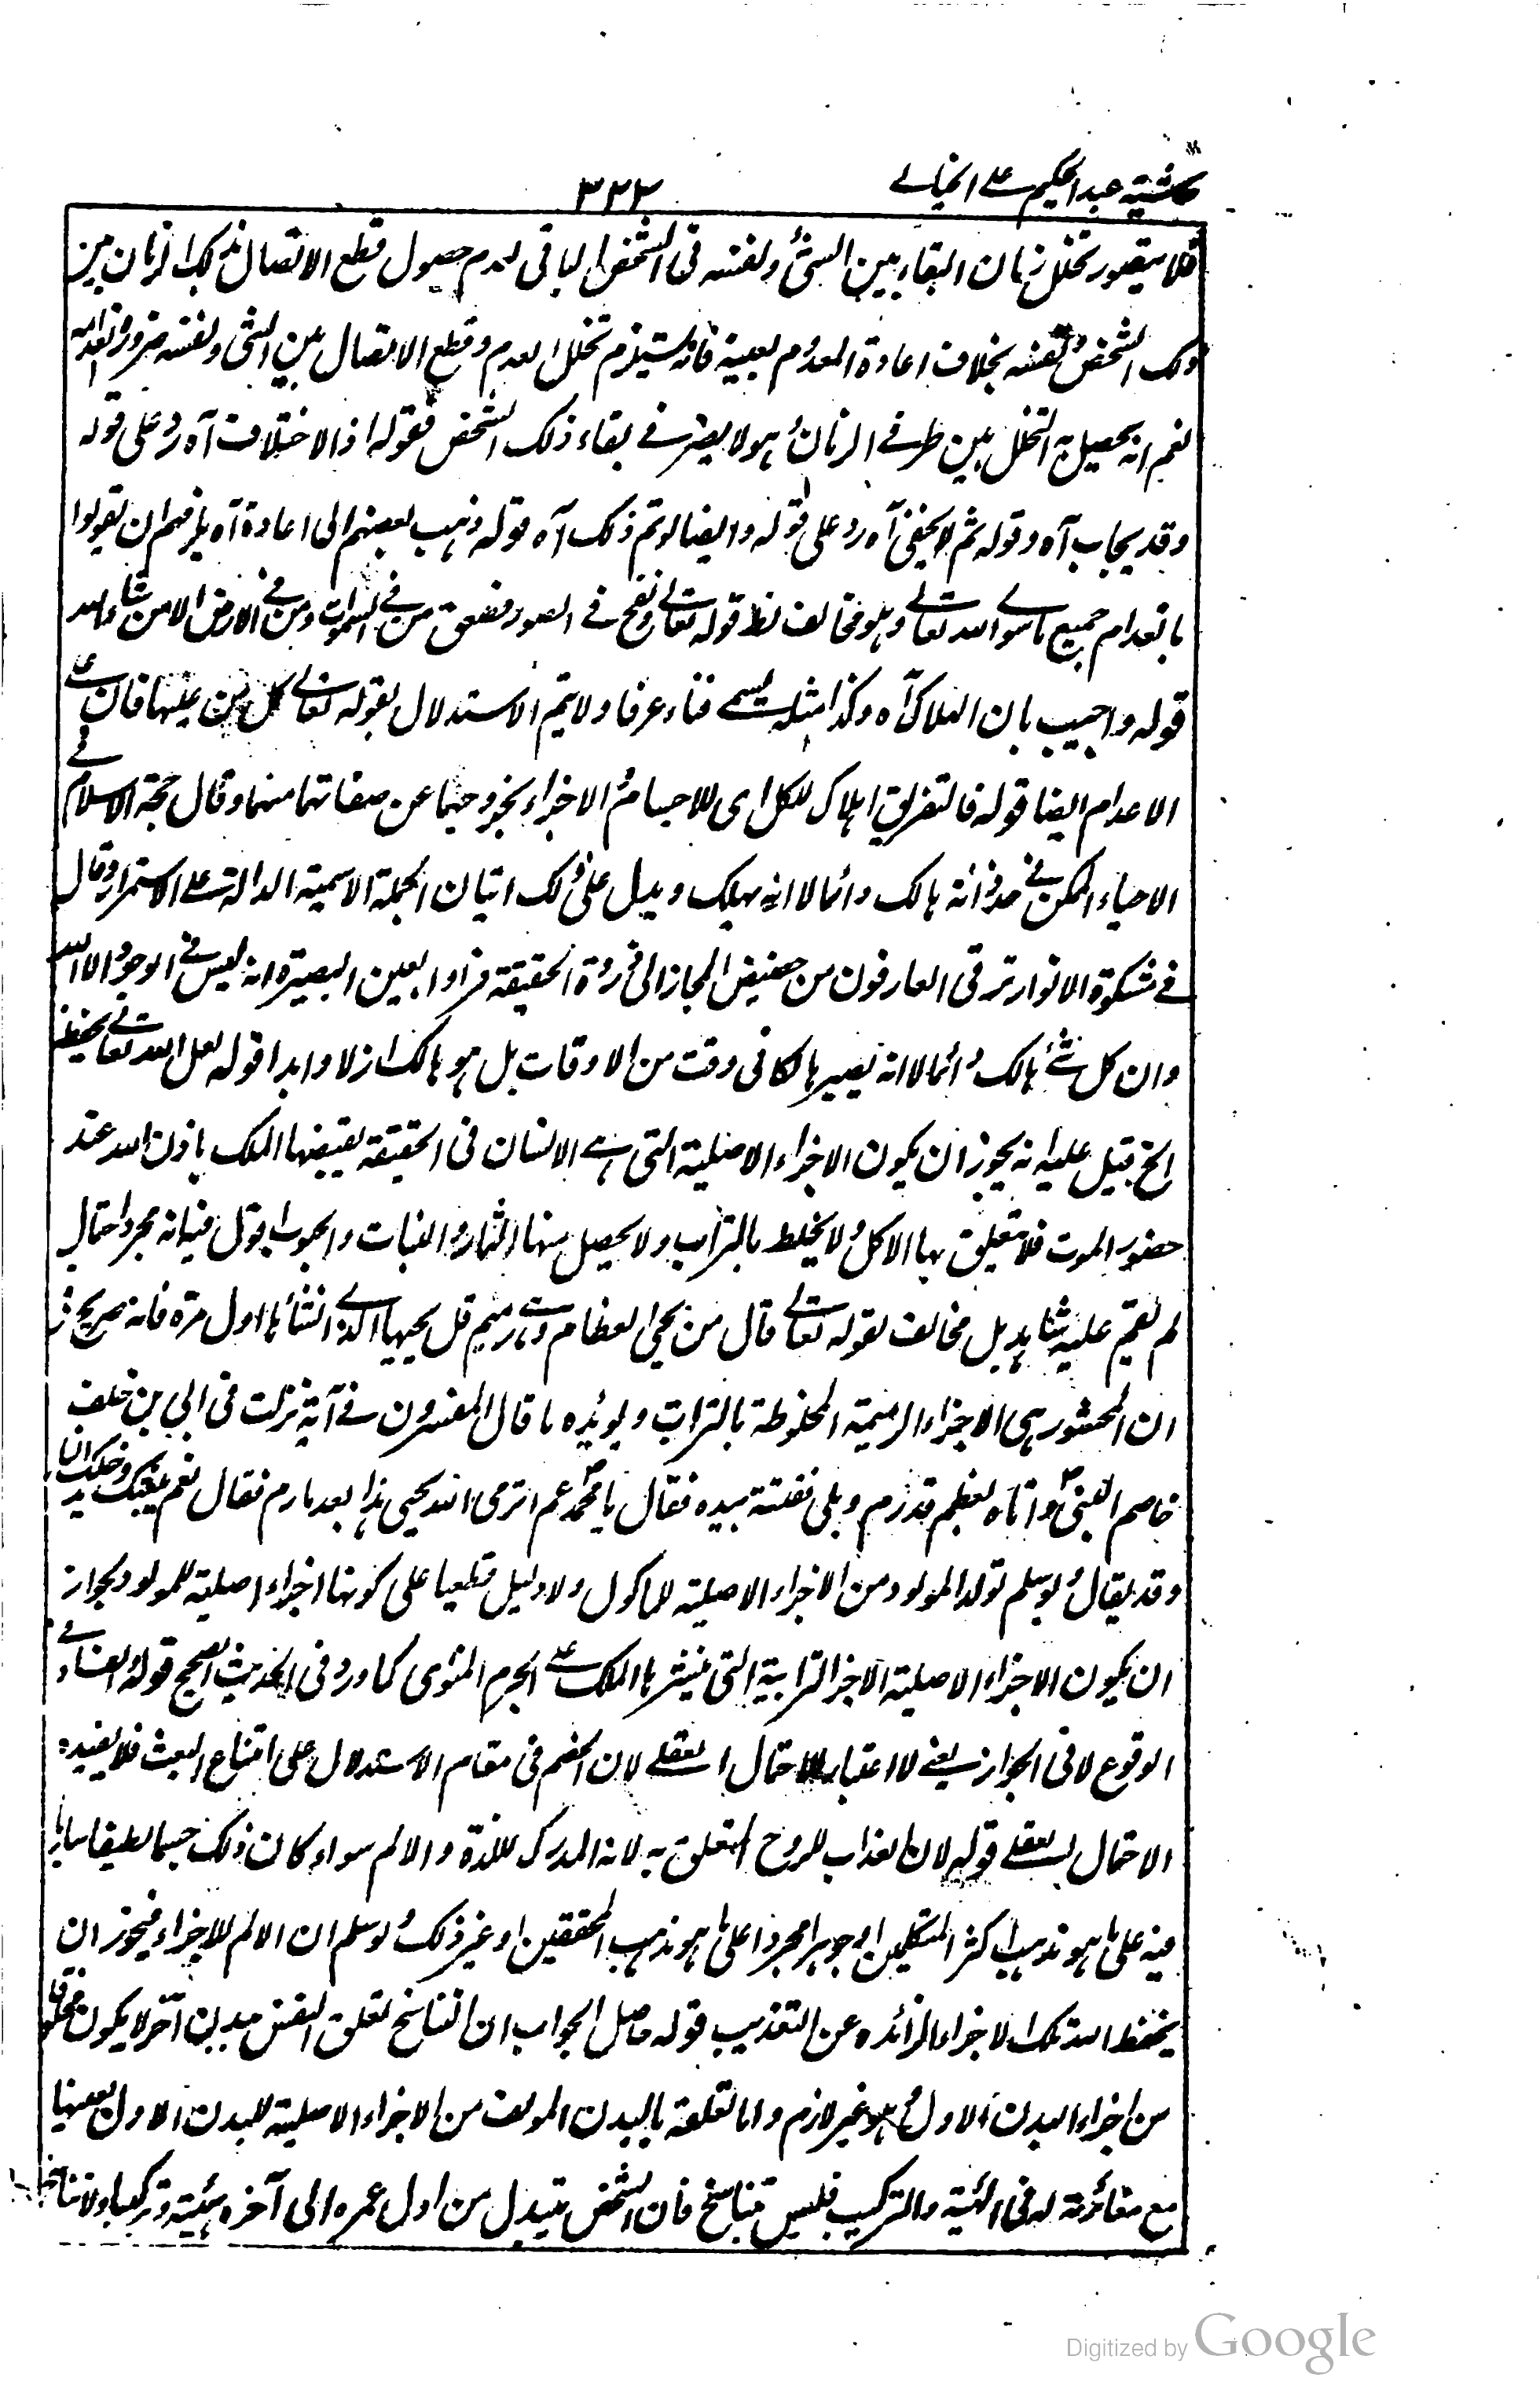 حاشیة عبد الحکیم علی الخیالی
٣٣٢
فلا یتصور تخلل زمان البقاء بین الشئ ونفسه فی الشخص الباقی لعدم حصول قطع الاتصال بذلک الزمان بین
ذلک الشخص ونفسه بخلاف اعادة المعدوم بعینه فانه یستلزم تخلل العدم وقطع الاتصال بین الشئ ونفسه ضرورة
نعم انه یحصل به التخلل بین طرفی الزمان وهو لا یضر فی بقاء ذلک الشخص فقوله اذ الاختلاف آه رد علی قوله
وقد یجاب آه وقوله ثم لا یخفی آه رد علی قوله وایضا لو تم ذلک آه قوله وذهب بعضهم الی اعادة آه یلزمهم ان یقولوا
بانعدام جمیع ما سوی الله تعالی وهو مخالف لظ قوله تعالی ونفخ فی الصور فصعق من فی السموات ومن فی الارض الا من شاء الله
قوله واجیب بان الهلاک آه وکذا مثله یسمی فناء عرفا ولا یتم الاستدلال بقوله تعالی کل من علیها فان علی
الاعدام ایضا قوله فالتفریق اهلاک للکل ای للاجسام والاجزاء بخروجهما عن صفاتهما منهما وقال حجة الاسلام فی
الاحیاء الممکن فی حد ذاته هالک دائما لا انه یهلک ویدل علی ذلک اتیان الجملة الاسمیة الدالة علی الاستمرار وقال
فی مشکوة الانوار ترقی العارفون من حضیض المجاز الی ذروة الحقیقة فراوا بعین البصیرة انه لیس فی الوجود الا الله
وان کل شئ هالک دائما لا انه یصیر هالکا فی وقت من الاوقات بل هو هالک ازلا وابدا قوله لعل الله تعالی یحفظه
الخ قیل علیه انه یجوز ان یکون الاجزاء الاصلیة التی هی الانسان فی الحقیقة یقبضها الملک باذن الله عند
حضور الموت فلا یتعلق بها الاکل ولا یخلط بالتراب ولا یحصل منها الثمار والنبات والحبوب اقول فیه انه مجرد احتمال
لم یقم علیه شاهد بل مخالف لقوله تعالی قال من یحی العظام وهی رمیم قل یحییها الذی انشأها اول مرة فانه صریح فی
ان المحشور هی الاجزاء الرمیمة المخلوطة بالتراب ویؤیده ما قال المفسرون فی آیة نزلت فی ابی بن خلف
خاصم النبی ص واتاه بعظم قد رم وبلی ففتته بیده فقال یا محمد عم اتری الله یحیی هذا بعد ما رم فقال نعم یبعثک ویدخلک النار
وقد یقال ولو سلم تولد المولود من الاجزاء الاصلیة للماکول ولا دلیل قطعیا علی کونها اجزاء اصلیة للمولود لجواز
ان یکون الاجزاء الاصلیة الاجزاء الترابیة التی ینشرها الملک علی الجرم المنوی کما ورد فی الحدیث الصحیح قوله والفساد فی
الوقوع لا فی الجواز یعنی لا اعتبار للاحتمال العقلی لان الخصم فی مقام الاستدلال علی امتناع البعث فلا یفیده
الاحتمال العقلی قوله لان العذاب للروح المتعلق به لانه المدرک للذة والالم سواء کان ذلک جسما لطیفا ساریا
فیه علی ما هو مذهب اکثر المتکلمین او جوهرا مجردا علی ما هو مذهب المحققین او غیر ذلک ولو سلم ان الالم للاجزاء فیجوز ان
یحفظ الله تلک الاجزاء الزائده عن التعذیب قوله حاصل الجواب ان التناسخ تعلق النفس ببدن آخر لا یکون مخلوقا
من اجزاء البدن الاول وهو غیر لازم واما تعلقه بالبدن المولف من الاجزاء الاصلیة للبدن الاول بعینها
مع مغائرته له فی الهیئة والترکیب فلیس بتناسخ فان الشخص یتبدل من اول عمره الی آخره هیئیة وترکیبا ولا تناسخ
Digitized by Google